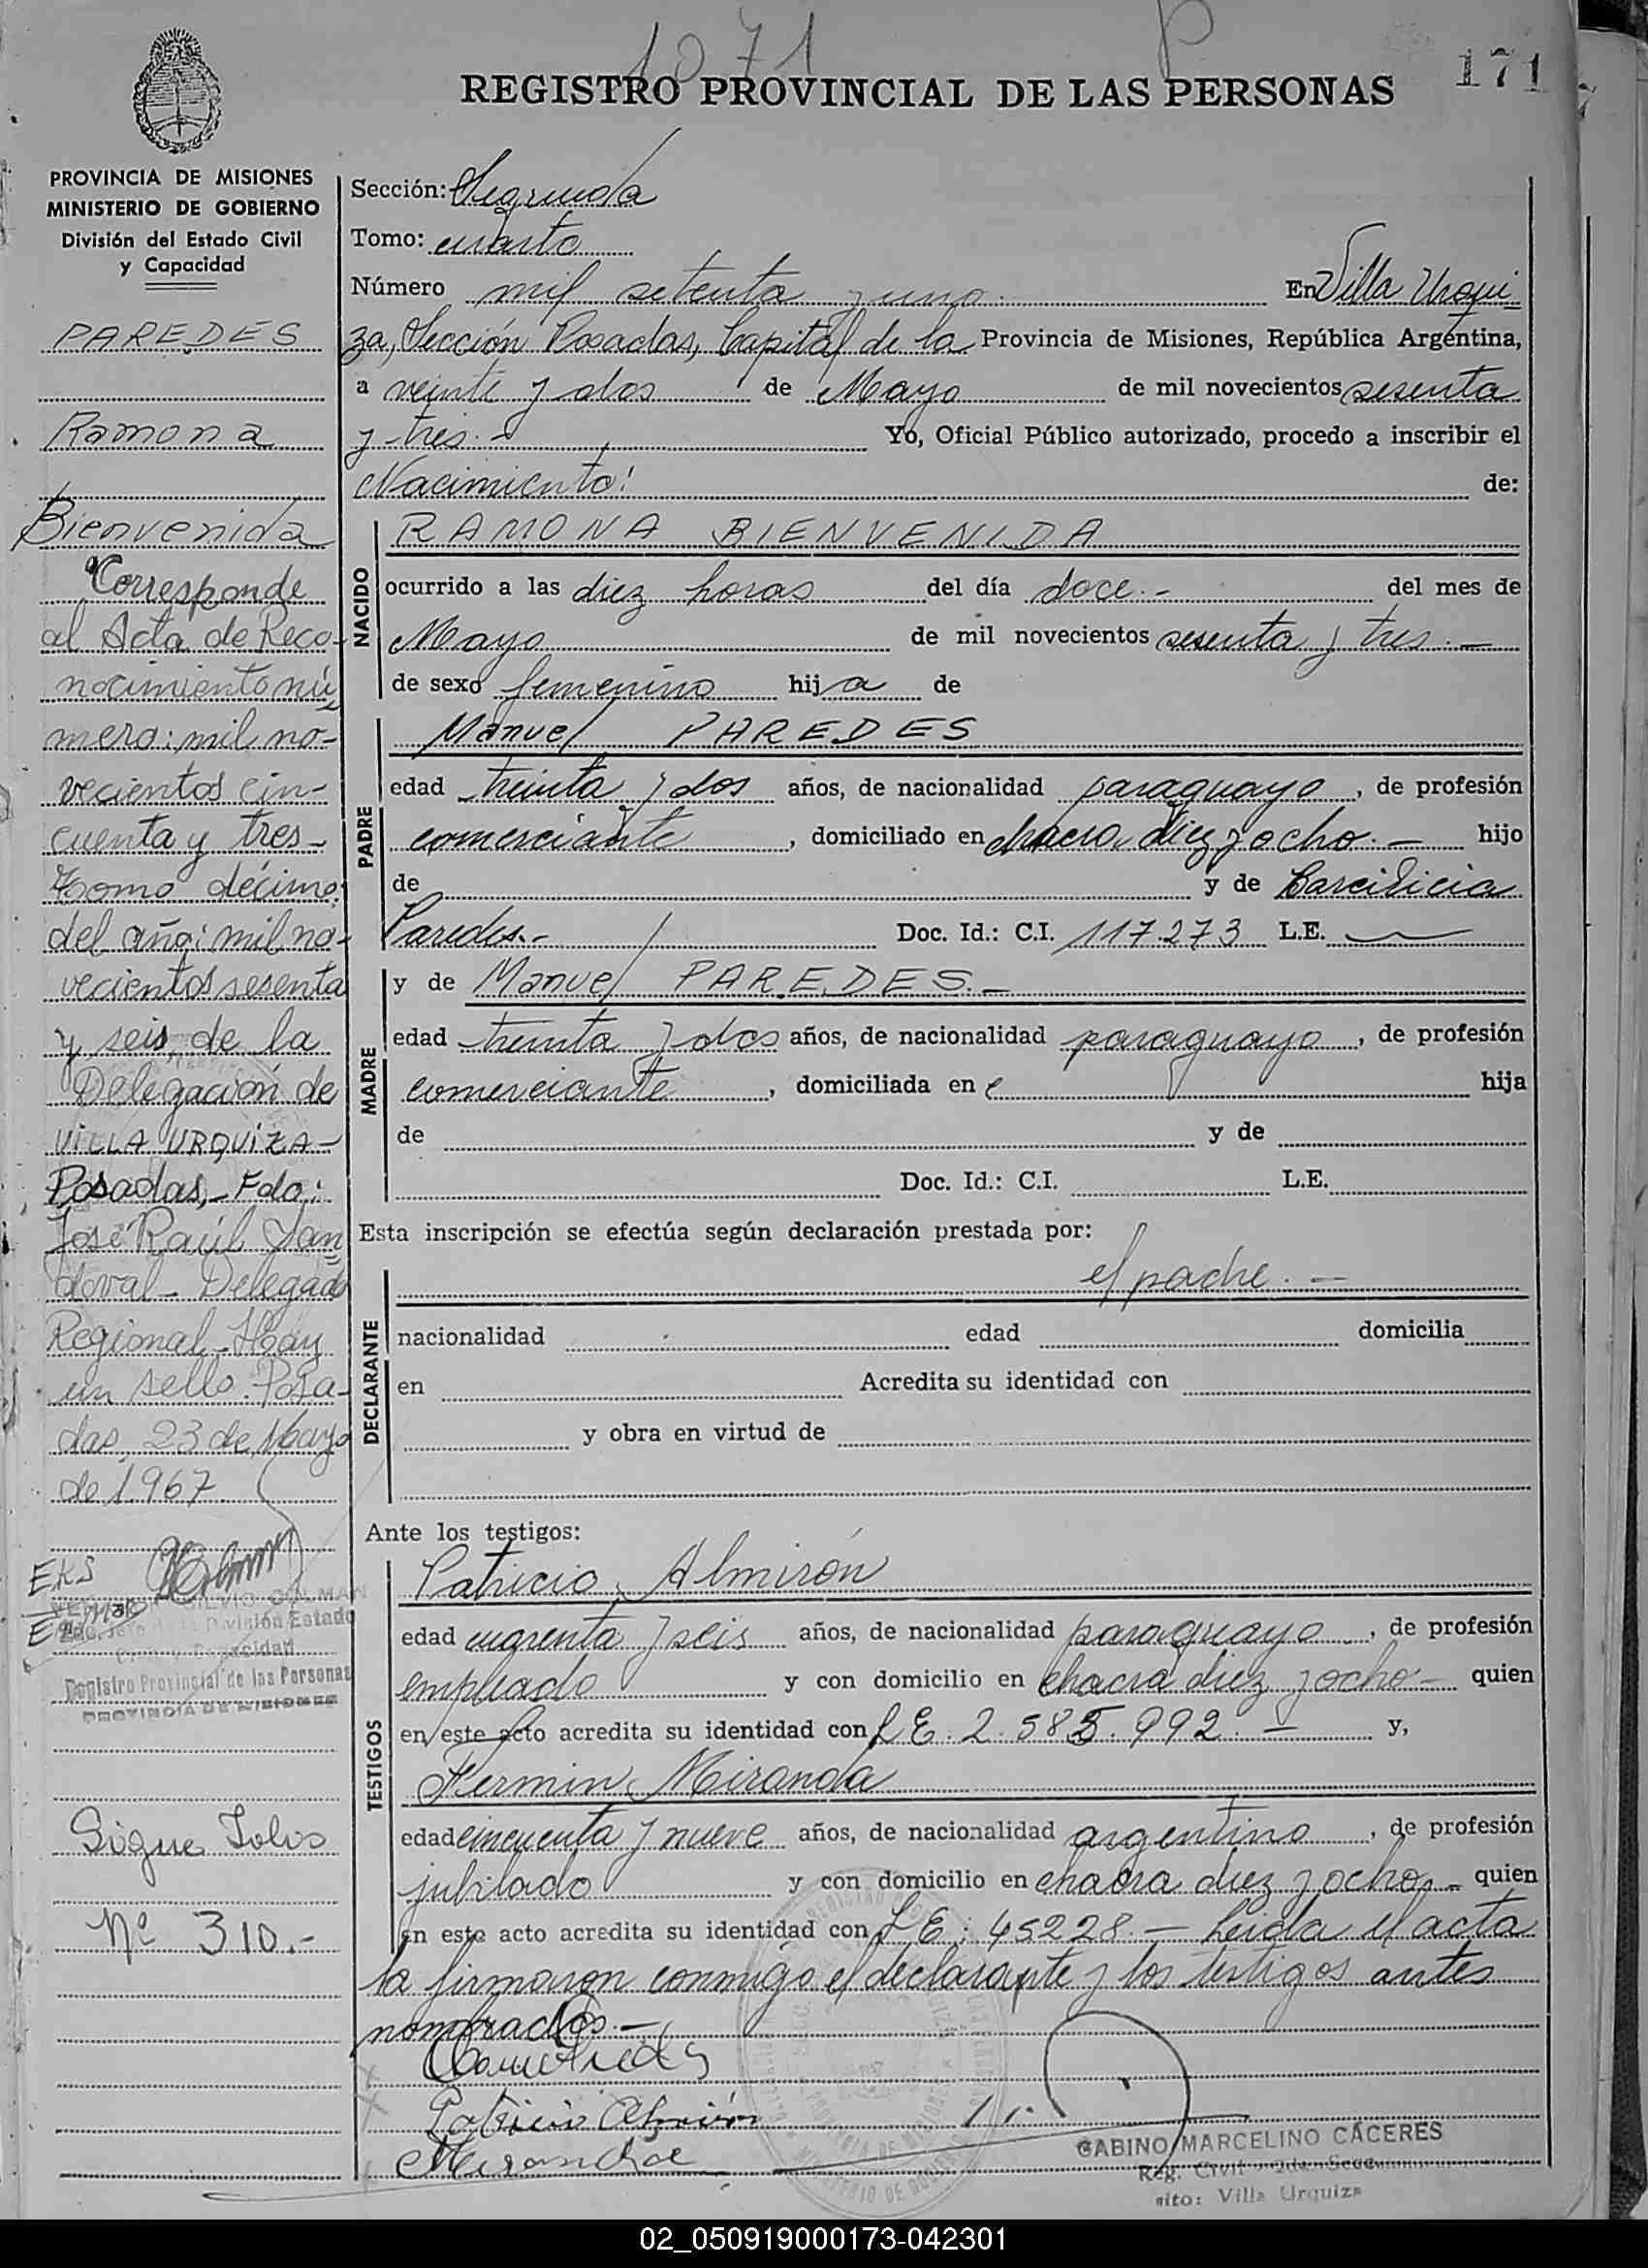 1071
P
REGISTRO PROVINCIAL DE LAS PERSONAS
171
PROVINCIA DE MISIONES
MINISTERIO DE GOBIERNO
División del Estado Civil
y Capacidad
PAREDES
Ramona
Bienvenida
Corresponde
al Acta de Reco-
nocimiento nú
mero: mil no-
vecientos cin-
cuenta y tres-
Tomo décimo
del año: mil no-
vecientos sesenta
y seis, de la
Delegación de
VILLA URQUIZA-
Posadas,- Fdo:
José Raúl San
doval- Delegado
Regional- Hay
un sello. Posa-
das, 23 de Mayo
de 1967
EKS
División Estado
Registro Provincial de las Personas
PROVINCIA DE MISIONES
Sigue Folios
Nº 310.-
Sección: Segunda
Tomo: cuarto
Número mil setenta y uno. En Villa Urqui
za, Sección Posadas, Capital de la Provincia de Misiones, República Argentina,
a veinte y dos de Mayo de mil novecientos sesenta
y tres.- Yo, Oficial Público autorizado, procedo a inscribir el
Nacimiento: de:
NACIDO
RAMONA BIENVENIDA
ocurrido a las diez horas del día doce.- del mes de
Mayo de mil novecientos sesenta y tres.-
de sexo femenino hija de
PADRE
Manuel PAREDES
edad treinta y dos años, de nacionalidad paraguayo, de profesión
comerciante, domiciliado en chacra diez y ocho.- hijo
de y de Carcilicia
Paredes.- Doc. Id.: C.I. 117.273 L.E.
MADRE
y de Manuel PAREDES.-
edad treinta y dos años, de nacionalidad paraguayo, de profesión
comerciante, domiciliada en hija
de y de
Doc. Id.: C.I. L.E.
Esta inscripción se efectúa según declaración prestada por:
DECLARANTE
el padre.-
nacionalidad edad domicilia
en Acredita su identidad con
y obra en virtud de
Ante los testigos:
TESTIGOS
Patricio Almirón
edad cuarenta y seis años, de nacionalidad paraguayo, de profesión
empleado y con domicilio en chacra diez y ocho- quien
en este acto acredita su identidad con L E. 2.585.992.- y,
Fermin Miranda
edad cincuenta y nueve años, de nacionalidad argentino, de profesión
jubilado y con domicilio en chacra diez y ocho.- quien
en este acto acredita su identidad con L E: 45228.- Leida el acta
la firmaron conmigo el declarante y los testigos antes
nombrados.-
Patricio Almirón
Miranda
GABINO MARCELINO CÁCERES
Reg. Civil 2da. Secc.
sito: Villa Urquiza
02_050919000173-042301